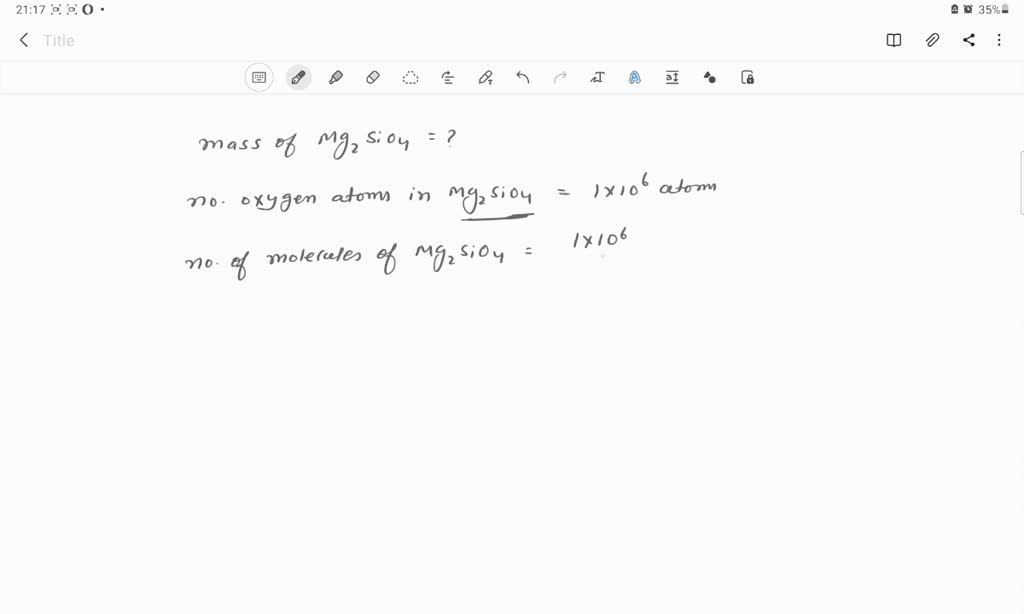 21:17
35%
Title
mass of Mg2SiO4 = ?
no. oxygen atoms in Mg2SiO4 = 1×10^6 atoms
no. of molecules of Mg2SiO4 = 1×10^6